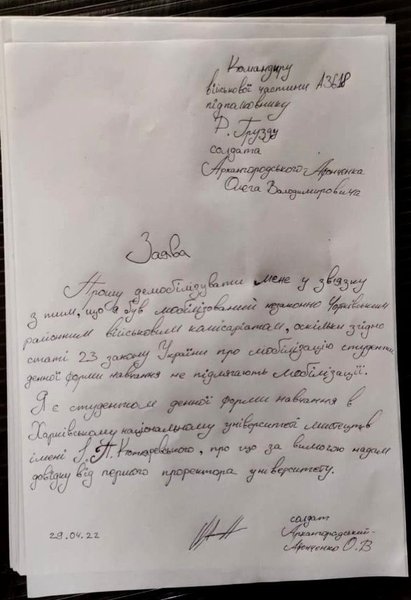 Командиру
військової частини А3618
підполковнику
Д. Грузду
солдата
Архангородського-Яронченка
Олега Володимировича
Заява
Прошу демобілізувати мене у зв'язку
з тим, що я був мобілізований незаконно Чугуївським
районним військовим комісаріатом, оскільки згідно
статті 23 закону України про мобілізацію студенти
денної форми навчання не підлягають мобілізації.
Я є студентом денної форми навчання в
Харківському національному університеті мистецтв
імені І. П. Котляревського, про що за вимогою надам
довідку від першого проректора університету.
29.04.22
солдат
Архангородський-
О. В